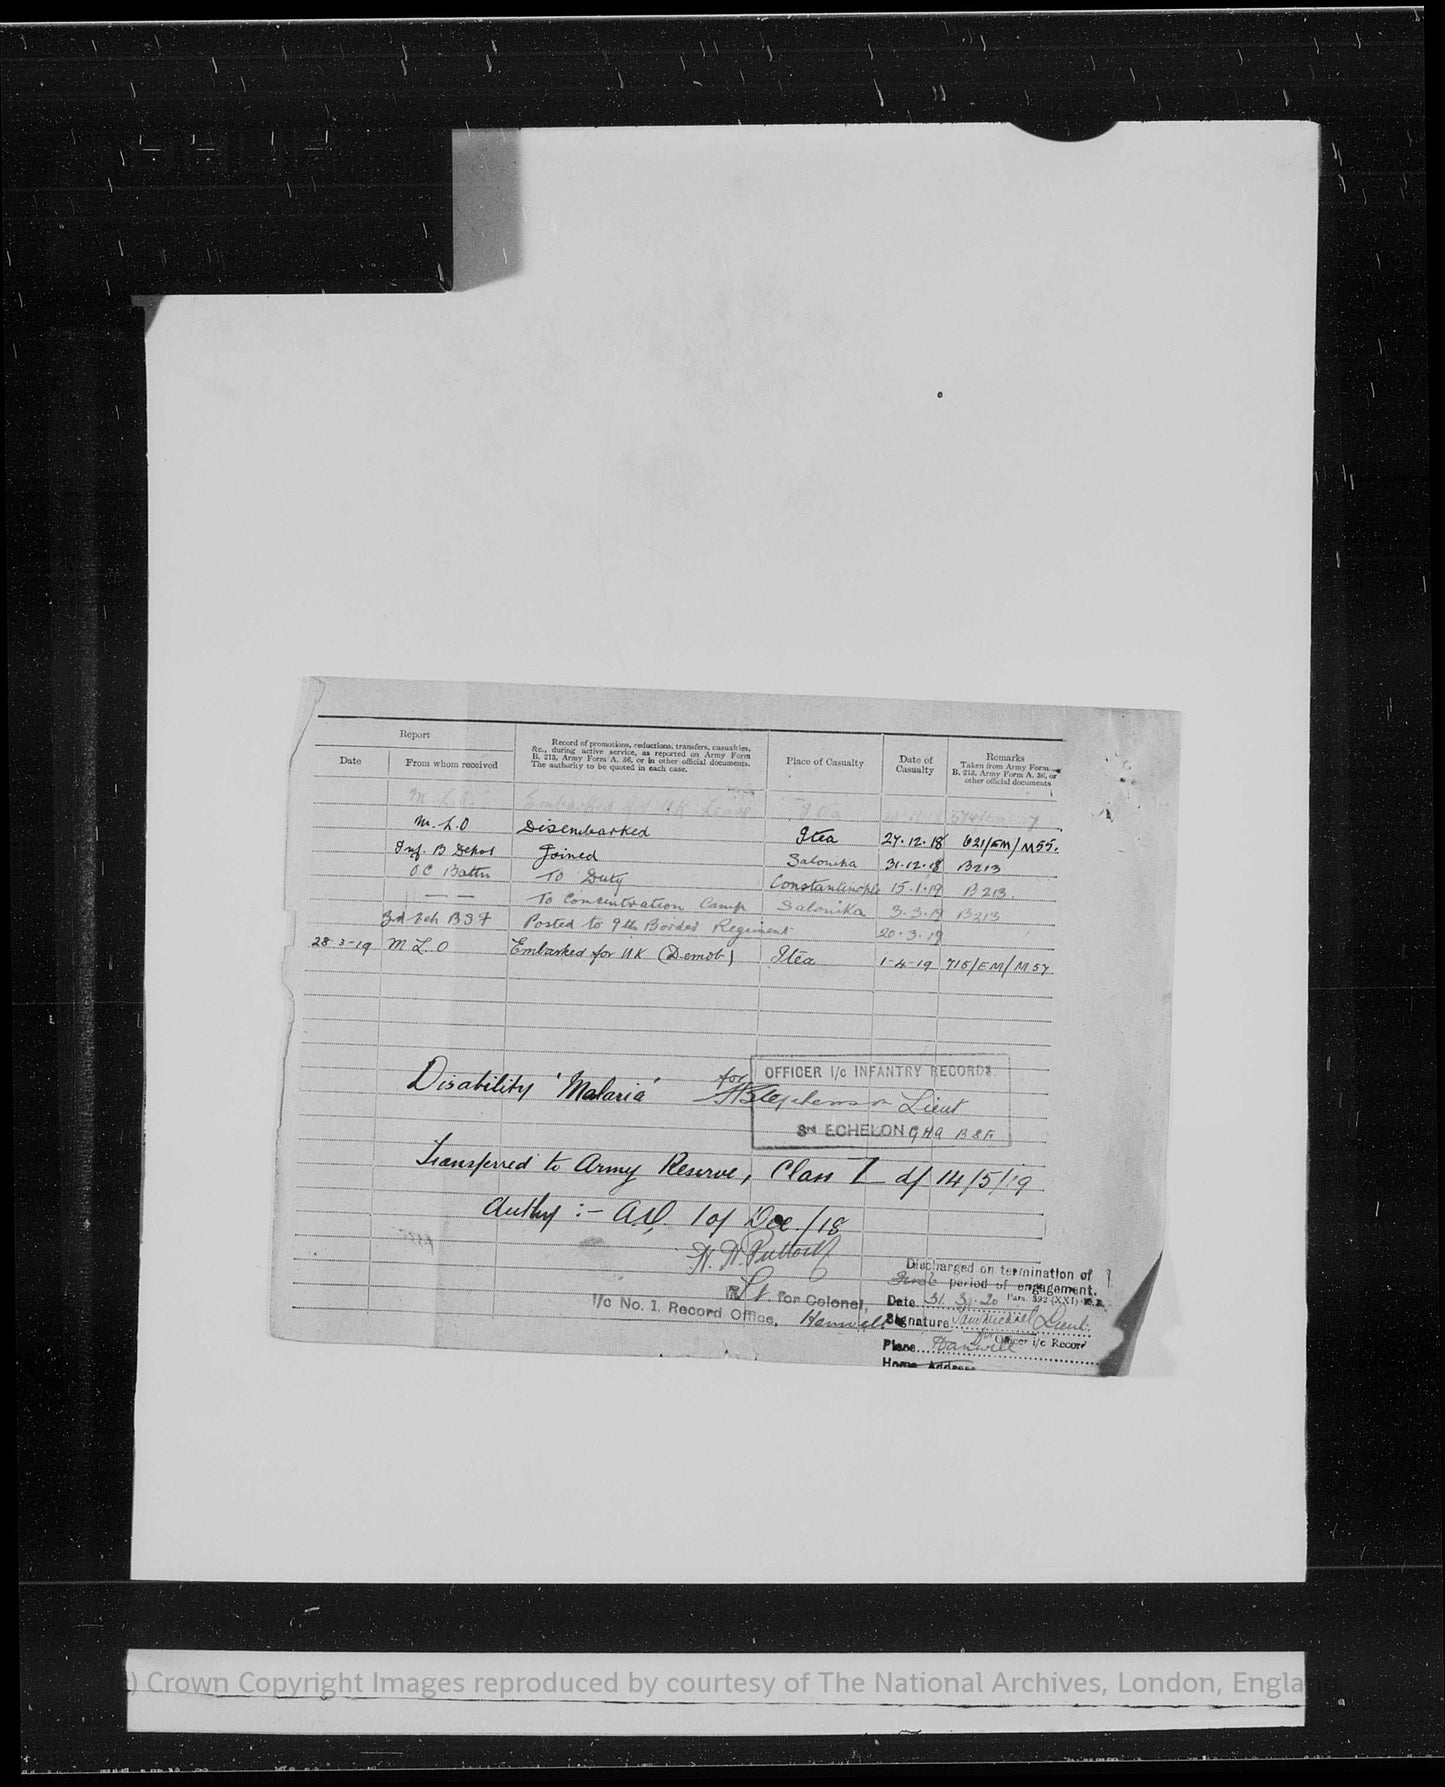 Report
Date
From whom received
Record of promotions, reductions, transfers, casualties,
&c., during active service, as reported on Army Form
B. 213, Army Form A. 36, or in other official documents.
The authority to be quoted in each case.
Place of Casualty
Date of
Casualty
Remarks
Taken from Army Form
B. 213, Army Form A. 36, or
other official documents
Embarked for UK Leave Itea
M.L.O Disembarked Itea 27.12.18 621/EM/M55.
Inf. B Depot Joined Salonika 31.12.18 B213
OC Battn To Duty Constantinople 15.1.19 B213.
— — To Concentration Camp Salonika 3.3.19 B213
3rd Ech BSF Posted to 9th Border Regiment 20.3.19
28 3-19 M L.O Embarked for UK (Demob) Itea 1-4-19 715/EM/M57
OFFICER i/c INFANTRY RECORDS.
Disability 'Malaria' for
Stephenson Lieut
3RD ECHELON GHQ BSF.
Transferred to Army Reserve, Class Z df 14/5/19
Authy :- A.O. 1 of Dec/18
Lt. for Colonel,
I/c No. 1, Record Office, Hanwell
Discharged on termination of
period of engagement.
Date 31.3.20 Para. 392 (XXI) K.R.
Signature Lieut.
for Officer i/c Record
Place Hanwell
Home Address
) Crown Copyright Images reproduced by courtesy of The National Archives, London, England